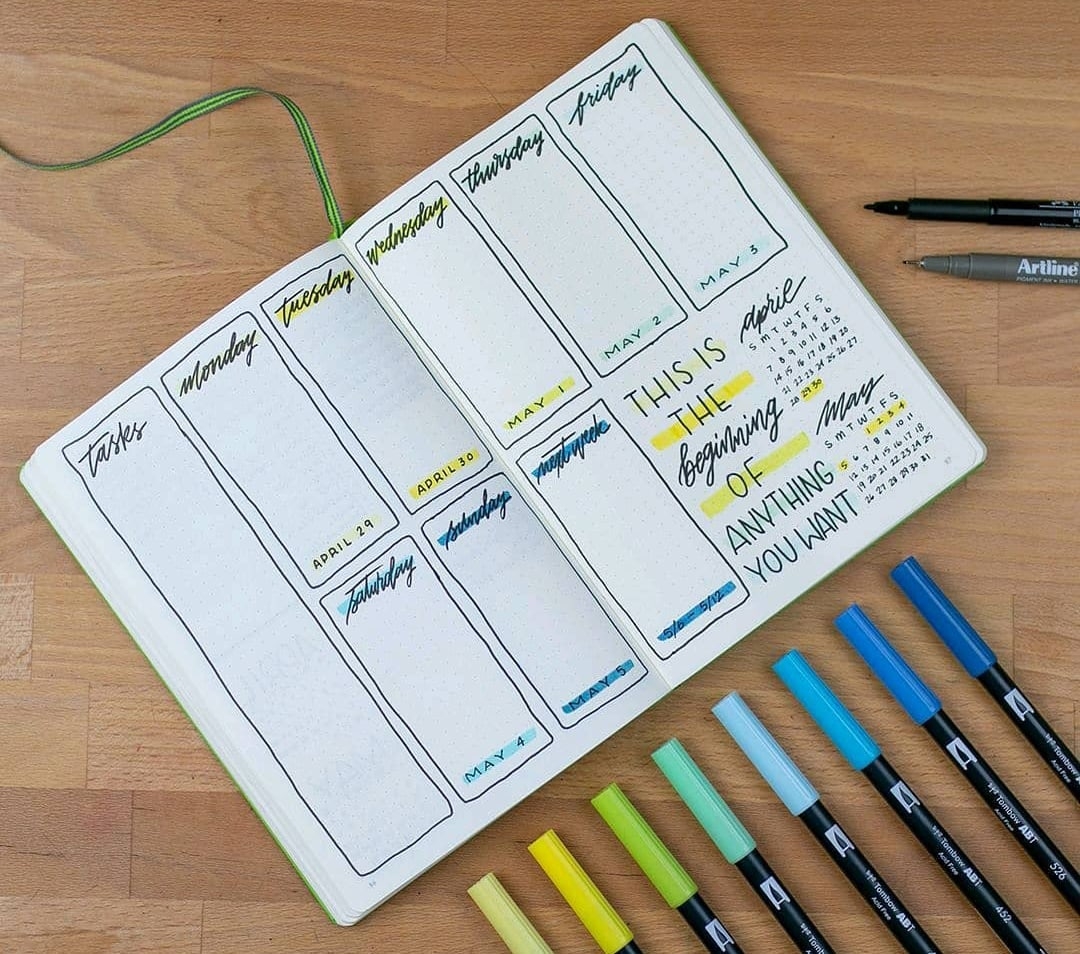 tasks
monday
APRIL 29
tuesday
APRIL 30
saturday
MAY 4
sunday
MAY 5
wednesday
MAY 1
thursday
MAY 2
friday
MAY 3
next week
5/6 - 5/12
THIS IS
THE
beginning
OF
ANYTHING
YOU WANT
april
S M T W T F S
1 2 3 4 5 6
7 8 9 10 11 12 13
14 15 16 17 18 19 20
21 22 23 24 25 26 27
28 29 30
May
S M T W T F S
1 2 3 4
5 6 7 8 9 10 11
12 13 14 15 16 17 18
19 20 21 22 23 24 25
26 27 28 29 30 31
Artline
Tombow ABT
Acid Free
Tombow ABT
Acid Free
452
Tombow ABT
Acid Free
526
Tombow
Acid Free